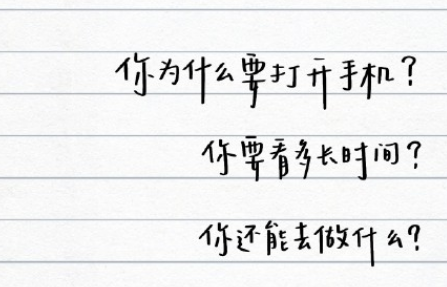 你为什么要打开手机？
你要看多长时间？
你还能去做什么？